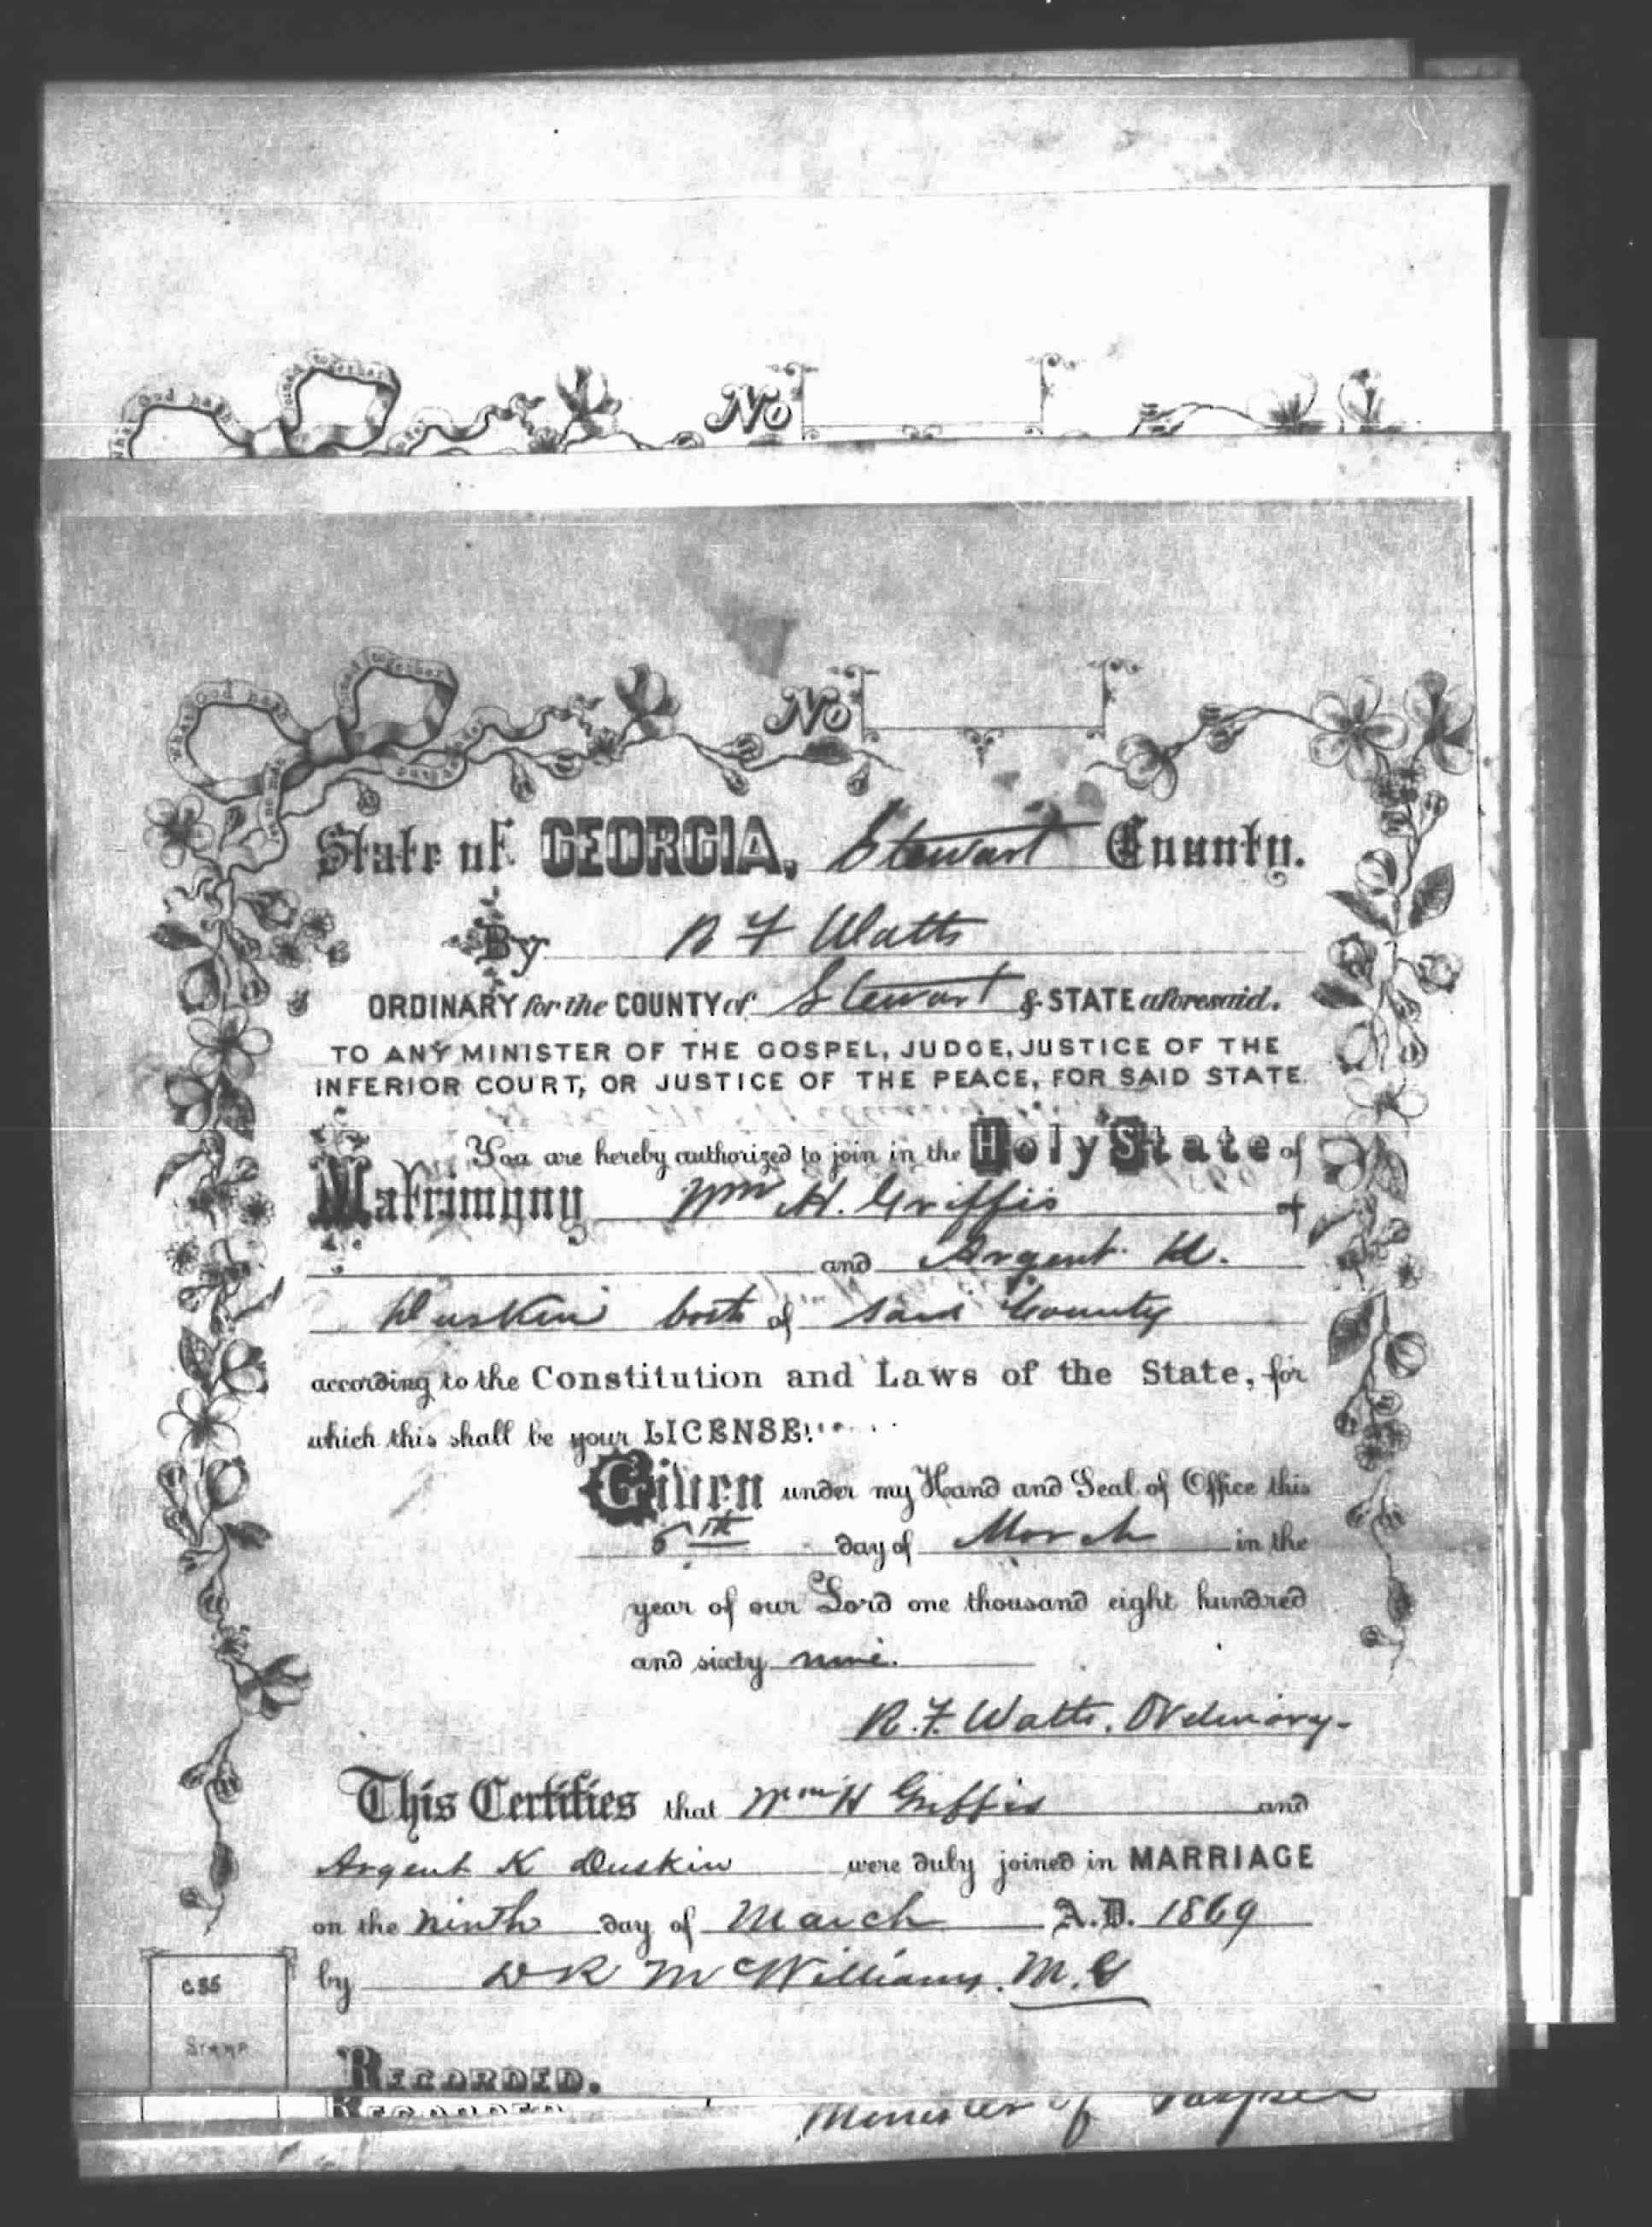 What God hath joined together
No
What God hath joined together let no man put asunder
No
State of GEORGIA, Stewart County.
By R F Watts
ORDINARY for the COUNTY of Stewart & STATE aforesaid.
TO ANY MINISTER OF THE GOSPEL, JUDGE, JUSTICE OF THE
INFERIOR COURT, OR JUSTICE OF THE PEACE, FOR SAID STATE.
You are hereby authorized to join in the Holy State of
Matrimony Wm H. Griffis +
and Argent K.
Duskin both of said County
according to the Constitution and Laws of the State, for
which this shall be your LICENSE:
Given under my Hand and Seal of Office this
day of March in the
year of our Lord one thousand eight hundred
and sixty nine.
R. F. Watts. Ordinary.
This Certifies that Wm H Griffis and
Argent K Duskin were duly joined in MARRIAGE
on the ninth day of March A.D. 1869
by D R McWilliams. M. G
STAMP
RECORDED.
RECORDED
Minister of Gospel